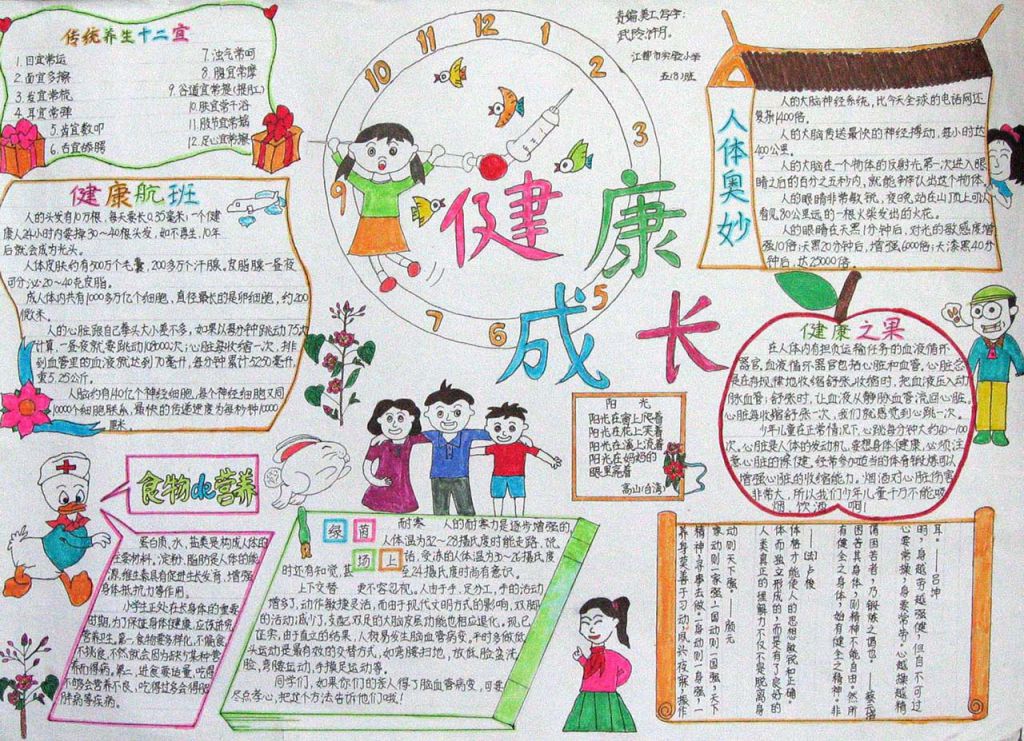 传统养生十二宜
1. 目宜常运
2. 面宜多擦
3. 发宜常梳
4. 耳宜常弹
5. 齿宜数叩
6. 舌宜舔腭
7. 浊气常呵
8. 腹宜常摩
9. 谷道宜常提(提肛)
10. 肤宜常干浴
11. 肢节宜常摇
12. 足心宜常擦
健康航班
人的头发有10万根,每天要长0.35毫米;一个健
康人24小时内要掉30~40根头发,如不再生,10年
后就会成为光头。
人体皮肤约有500万个毛囊,200多万个汗腺。皮脂腺一昼夜
可分泌20~40克皮脂。
成人体内共有1000多万亿个细胞,直径最长的是卵细胞,约200
微米。
人的心脏跟自己拳头大小差不多,如果以每分钟跳动75次
计算,一昼夜就要跳动108000次;心脏每收缩一次,排
到血管里的血液就达到70毫升,每分钟累计5250毫升,
重5.25公斤。
人脑约有140亿个神经细胞,每个神经细胞又同
10000个细胞联系,最快的传递速度为每秒钟10000
厘米。
12
1
2
3
5
6
7
9
10
11
健康
成长
责编、美工、写字:
江都市实验小学
五(8)班
人体奥妙
人的大脑神经系统,比今天全球的电话网还
复杂1400倍。
人的大脑传送最快的神经搏动,每小时达
400公里。
人的大脑在一个物体的反射光第一次进入眼
睛之后的百分之五秒内,就能够辨认出这个物体。
人的眼睛非常敏锐,夜晚站在山顶上可以
看见80公里远的一根火柴发出的火花。
人的眼睛在天黑1分钟后,对光的敏感度增
强10倍;天黑20分钟后,增强6000倍;天漆黑40分
钟后,达25000倍。
健康之果
在人体内担负运输任务的血液循环
器官,血液循环器官包括心脏和血管。心脏总
是在有规律地收缩舒张,收缩时,把血液压入动
脉血管;舒张时,让血液从静脉血管流回心脏。
心脏每收缩舒张一次,我们就感觉到心跳一次。
少年儿童在正常情况下,心跳每分钟大约60~100
次。心脏是人体的发动机,要想身体健康,必须注
意心脏的保健,经常参加适当的体育锻炼可以
增强心脏的收缩能力。烟酒对心脏伤害
非常大,所以我们少年儿童千万不能吸
烟、饮酒啊!
阳光
阳光在窗上爬着
阳光在花上笑着
阳光在溪上流着
阳光在妈妈的
眼里亮着
高山(台湾)
食物de营养
蛋白质、水、盐类是构成人体的
主要材料。淀粉、脂肪是人体的能
源,维生素具有促进生长发育,增强
身体抵抗力等作用。
小学生正处在长身体的重要
时期,为了保证身体健康,应该讲究
营养卫生。第一,食物要多样化,不偏食,
不挑食,不然就会因为缺少某种营
养而得病。第二,进食要适量,吃得
不够会营养不良,吃得过多会得肥
胖病等疾病。
绿茵
场上
耐寒 人的耐寒力是逐步增强的。
人体温为32~28摄氏度时能走路、说
话,受冻的人体温为30~26摄氏度
时还有知觉,甚至24摄氏度时尚有意识。
上下交替 更不容忽视。人由于手、足分工,手的活动
增多了,动作敏捷灵活,而由于现代文明方式的影响,双脚
的活动减少了,支配双足的大脑发展功能也相应退化。现已
证实,由于直立的结果,人极易发生脑血管病变。平时多做低
头运动是最有效的交替方式,如弯腰扫地,放低脸盆洗
脸,弯腰运动,手摸足运动等。
同学们,如果你们的亲人得了脑血管病变,可要
尽点孝心,把这个方法告诉他们哦!
耳。——吕坤
明,身越劳越强健,但自不可过
心要常操,身要常劳,心越操越精
有健全之身体,始有健全之精神;非
困苦其身体,则精神不能自由。然所
谓困苦者,乃锻炼之谓也。——蔡元培
——(法)卢梭
体格才能使人的思想敏锐和正确。
体而独立形成的,而是有了良好的
人类真正的理解力不仅不是脱离身
动则天下强。——颜元
家动则家强,一国动则一国强,天下
精神,寻事去做。一身动则一身强,一
养身莫善于习动,夙兴夜寐,振作